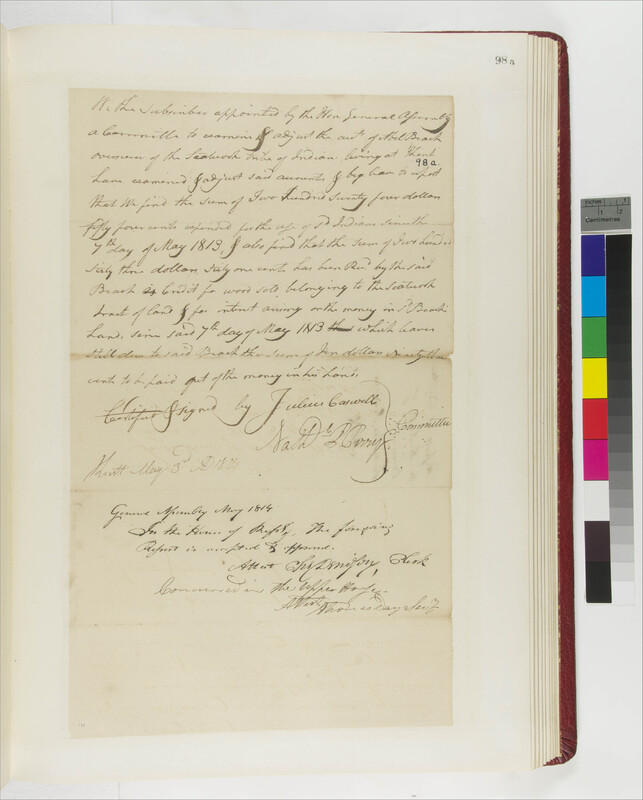 98a
We the Subscribers appointed by the Hon. General Assembly
a Committe to examine & adjust the act. of Abel Beach
overseer of the Scatecook tribe of Indians living at Kent
98a.
have examined & adjust said accounts & beg leave to report
that We find the Sum of Two hundred Seventy four dollars
fifty four cents expended for the use of Sd. Indians since the
7th day of May 1813, & also find that the Sum of Two hundred
Sixty three dollars Sixty one cents has been by the said
Beach Credit for wood sold belonging to the Scatecook
tract of land & for intrest arising on the money in Sd. Beach's
hands since said 7th day of May 1813 which leaves
Still due to said Beach the Sum of Ten dollars Ninety three
cents to be paid out of the money in his hands.
Certified & signed by Julius Caswell
Nathl. P. Perry Committee
Kent May 3d. AD 1814
General Assembly May 1814
In the House of the foregoing
Report is accepted & approved.
Attest Clerk
Concurred in the Upper House
Attest Thomas Day Secy
Inches
Centimetres